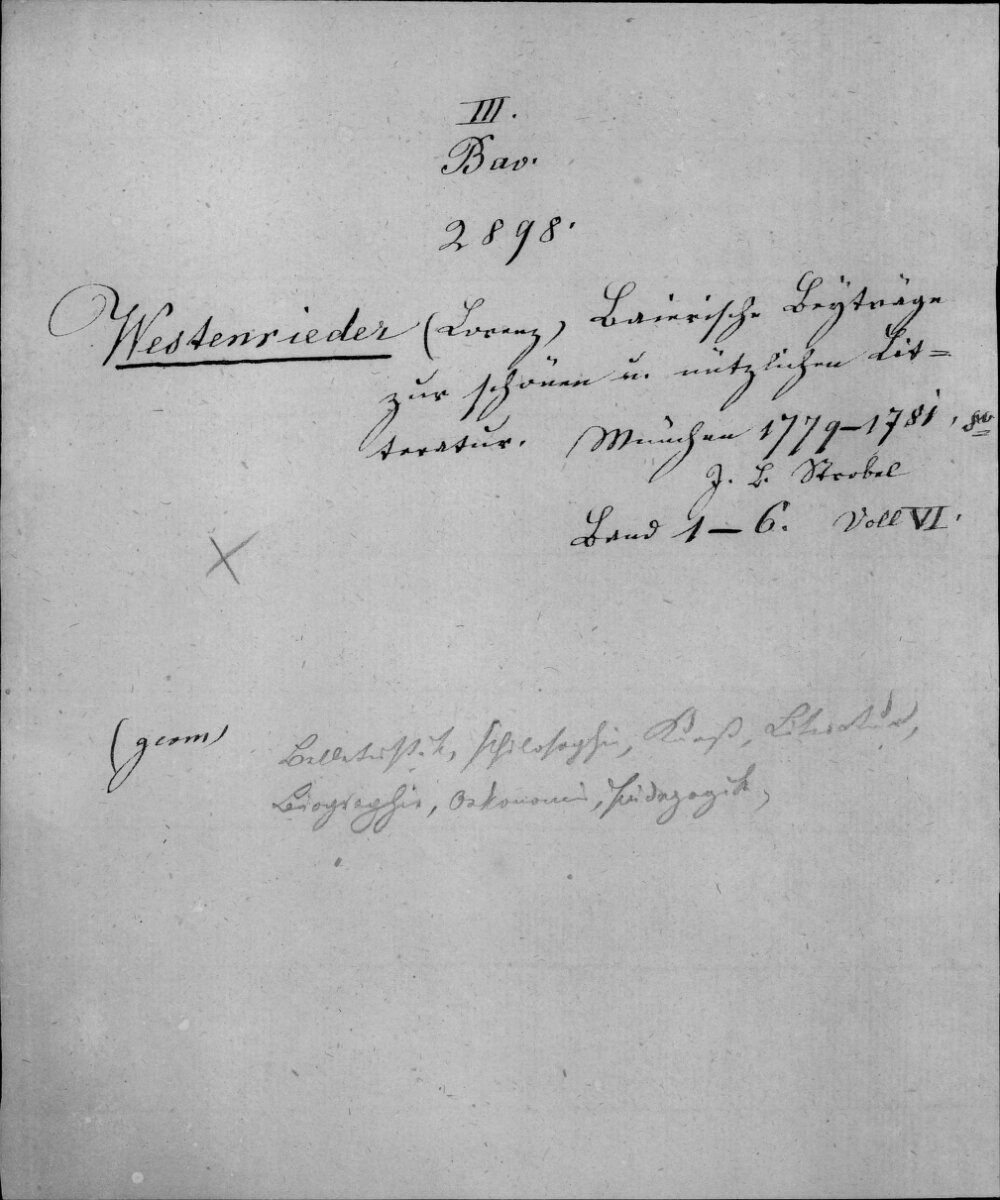 III.
Bav.
2898.
Westenrieder (Lorenz) Baierische Beyträge
zur schönen u. nützlichen Lit=
teratur. München 1779–1781, 8vo
J. B. Strobel
Band 1–6. Voll VI.
(germ)
Belletristik, Philosophie, Kunst, Literatur,
Biographie, Oekonomie, Pädagogik,